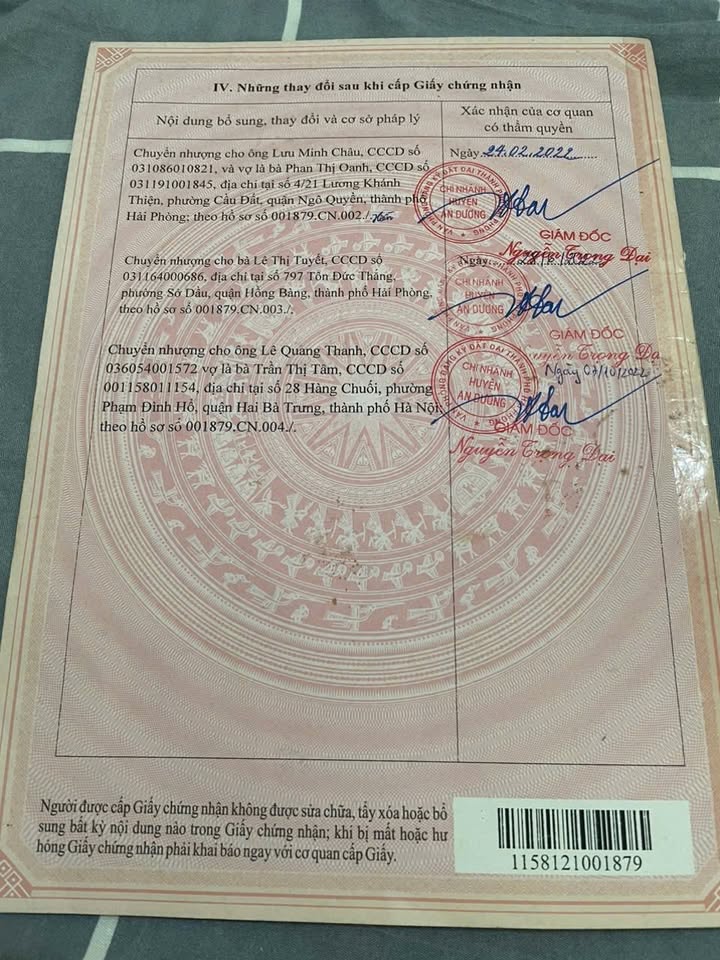 IV. Những thay đổi sau khi cấp Giấy chứng nhận
Nội dung bổ sung, thay đổi và cơ sở pháp lý
Xác nhận của cơ quan
có thẩm quyền
Chuyển nhượng cho ông Lưu Minh Châu, CCCD số
031086010821, và vợ là bà Phan Thị Oanh, CCCD số
031191001845, địa chỉ tại số 4/21 Lương Khánh
Thiện, phường Cầu Đất, quận Ngô Quyền, thành phố
Hải Phòng; theo hồ sơ số 001879.CN.002./.
Ngày 24.02.2022
VĂN PHÒNG ĐĂNG KÝ ĐẤT ĐAI THÀNH PHỐ HẢI PHÒNG
CHI NHÁNH
HUYỆN
AN DƯƠNG
GIÁM ĐỐC
Nguyễn Trọng Đại
Chuyển nhượng cho bà Lê Thị Tuyết, CCCD số
031164000686, địa chỉ tại số 797 Tôn Đức Thắng,
phường Sở Dầu, quận Hồng Bàng, thành phố Hải Phòng,
theo hồ sơ số 001879.CN.003./.
Ngày
CHI NHÁNH
HUYỆN
AN DƯƠNG
GIÁM ĐỐC
Nguyễn Trọng Đại
Chuyển nhượng cho ông Lê Quang Thanh, CCCD số
036054001572 vợ là bà Trần Thị Tâm, CCCD số
001158011154, địa chỉ tại số 28 Hàng Chuối, phường
Phạm Đình Hổ, quận Hai Bà Trưng, thành phố Hà Nội;
theo hồ sơ số 001879.CN.004./.
Ngày 07/10/2022
VĂN PHÒNG ĐĂNG KÝ ĐẤT ĐAI THÀNH PHỐ HẢI PHÒNG
CHI NHÁNH
HUYỆN
AN DƯƠNG
GIÁM ĐỐC
Nguyễn Trọng Đại
Người được cấp Giấy chứng nhận không được sửa chữa, tẩy xóa hoặc bổ
sung bất kỳ nội dung nào trong Giấy chứng nhận; khi bị mất hoặc hư
hỏng Giấy chứng nhận phải khai báo ngay với cơ quan cấp Giấy.
1158121001879